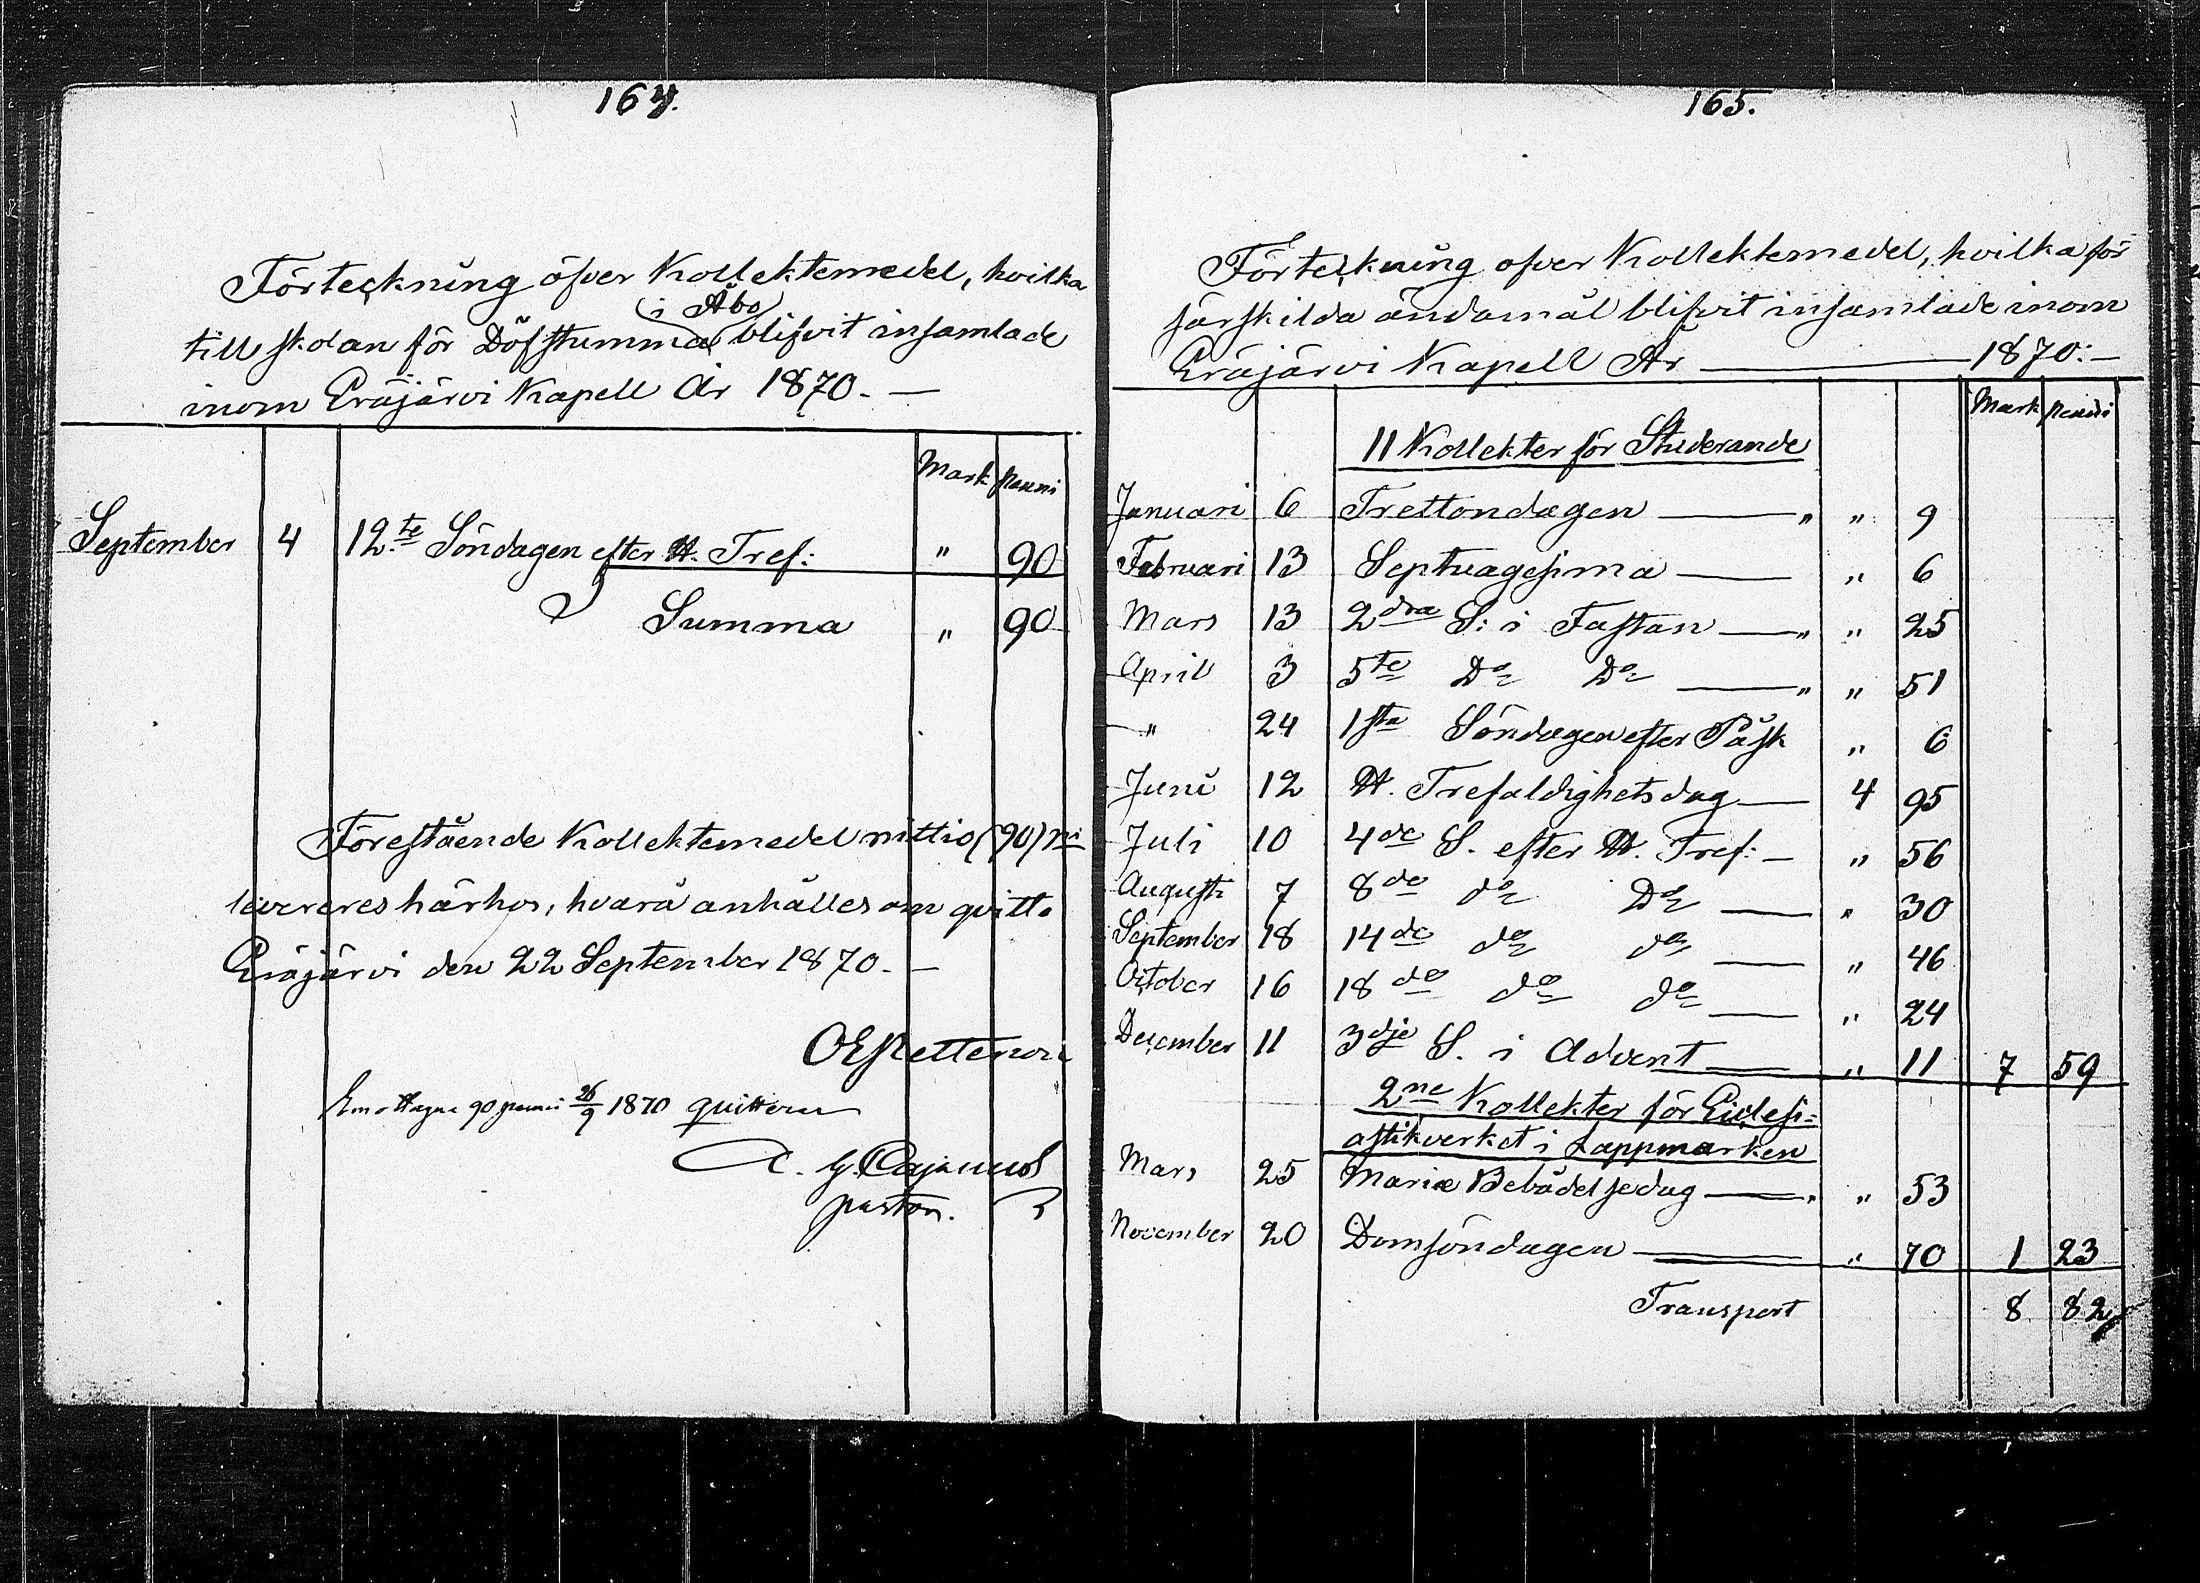 164.
Förteckning öfver Kollektemedel, hvilka
i Åbo
till skolan för Döfstumma blifvit insamlade
inom Eräjärvi Kapell År 1870. —
Mark penni
September 4 12.te Söndagen efter H. Tref: " 90
Summa " 90
Förestående Kollektemedel nittio (90) p:i
levereres härhos, hvarå anhålles om qvitto
Eräjärvi den 22 September 1870. —
Emottagne 90 penni 26/9 1870 quitteras
pastor.
165.
Förteckning öfver Kollektemedel, hvilka för
särskilda ändamål blifvit insamlade inom
Eräjärvi Kapell År — 1870: —
Mark penni
11 Kollekter för Studerande
Januari 6 Trettondagen — " " 9
Februari 13 Septuagesima — " 6
Mars 13 2dra S: i Fastan — " " 25
April 3 5te Do Do — " " 51
" 24 1sta Söndagen efter Påsk " 6
Juni 12 H. Trefaldighetsdag — 4 95
Juli 10 4de S. efter H. Tref: — " 56
Augusti 7 8de do Do — " 30
September 18 14de do do — " 46
October 16 18de do do — " 24
December 11 3dje S. i Advent — " 11 7 59
2ne Kollekter för Ecclesi=
astikverket i Lappmarken
Mars 25 Mariæ Bebådelsedag — " " 53
November 20 Domsöndagen — " 70 1 23
Transport 8 82